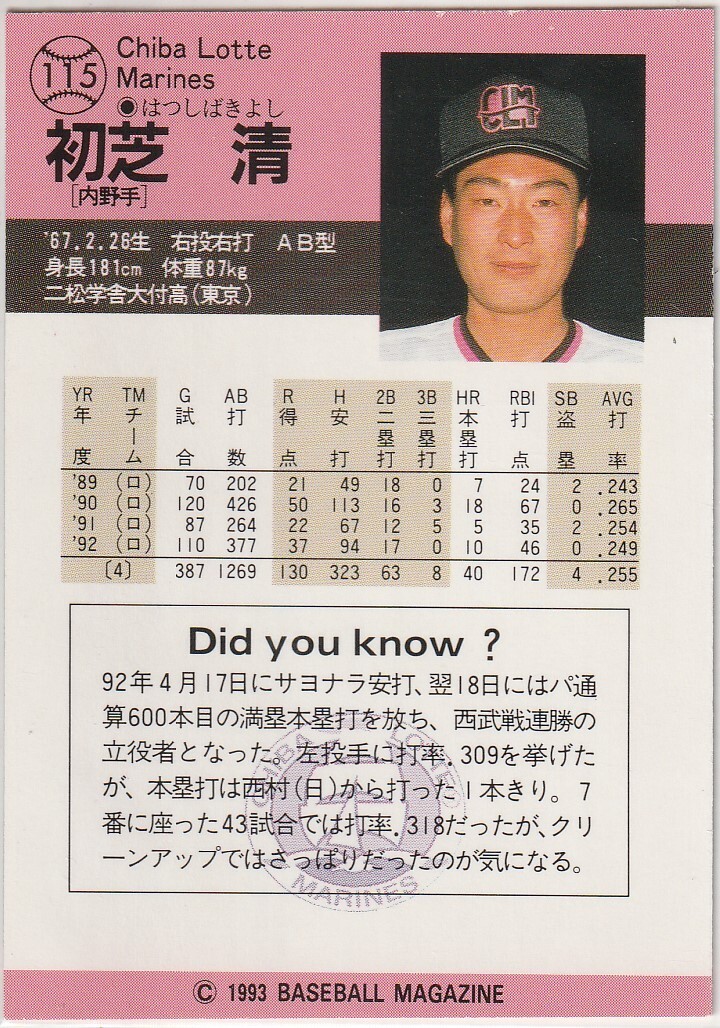 115
Chiba Lotte
Marines
●はつしばきよし
初芝 清
[内野手]
'67.2.26生 右投右打 AB型
身長181cm 体重87kg
二松学舎大付高(東京)
YR TM G AB R H 2B 3B HR RBI SB AVG
年度 チーム 試合 打数 得点 安打 二塁打 三塁打 本塁打 打点 盗塁 打率
'89 (ロ) 70 202 21 49 18 0 7 24 2 .243
'90 (ロ) 120 426 50 113 16 3 18 67 0 .265
'91 (ロ) 87 264 22 67 12 5 5 35 2 .254
'92 (ロ) 110 377 37 94 17 0 10 46 0 .249
〔4〕 387 1269 130 323 63 8 40 172 4 .255
Did you know ?
92年4月17日にサヨナラ安打、翌18日にはパ通
算600本目の満塁本塁打を放ち、西武戦連勝の
立役者となった。左投手に打率.309を挙げた
が、本塁打は西村(日)から打った1本きり。7
番に座った43試合では打率.318だったが、クリ
ーンアップではさっぱりだったのが気になる。
CHIBA LOTTE
MARINES
© 1993 BASEBALL MAGAZINE